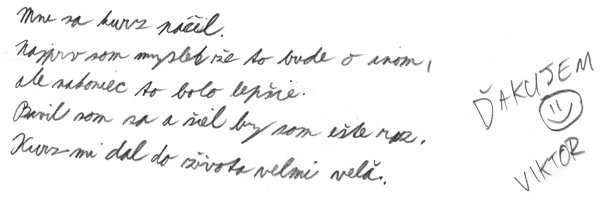 Mne sa kurz páčil.
Najprv som myslel že to bude o inom,
ale nakoniec to bolo lepšie.
Bavil som sa a šiel by som ešte raz.
Kurz mi dal do života velmi velã.
ĎAKUJEM
VIKTOR